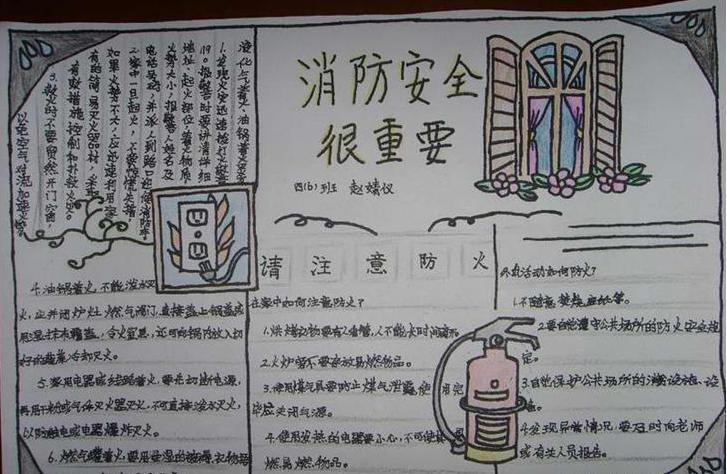 消防安全
很重要
四(6)班 赵婧仪
液化气着火，油锅着火
1.发现火灾迅速拨打火警
119。报警时要讲清详细
地址、起火部位、着火物质、
火势大小、报警人姓名及
电话号码，并派人到路口迎候消防车
2.家中一旦起火，不要惊慌失措
如果火势不大，应迅速利用家
有的简易灭火器材，采取
有效措施控制和扑救火灾。
3.救火时不要贸然开门窗，
以免空气对流加速火势
4.油锅着火，不能泼水灭
火，应关闭炉灶燃气阀门，直接盖上锅盖或
用湿抹布覆盖，令火窒息，还可向锅内放入切
好的蔬菜冷却灭火。
5.家用电器或线路着火，要先切断电源，
再用干粉或气体灭火器灭火，不可直接泼水灭火，
以防触电或电器爆炸灭火。
6.燃气罐着火，要用浸湿的被褥衣物捂
请注意防火
在家中如何注意防火？
1.烘烤衣物要有人看管，人不能长时间离
2.火炉旁不要存放易燃物品。
3.使用煤气具要防止煤气泄露，使用完
毕应关闭气源。
4.使用发热的电器要小心，不可使
燃易燃物品。
外出活动如何防火？
1.不随意焚烧
2.要自觉遵守公共场所的防火安全规
定。
3.自觉保护公共场所的消防设施、设
4.发现异常情况，要及时向老师
或有关人员报告。